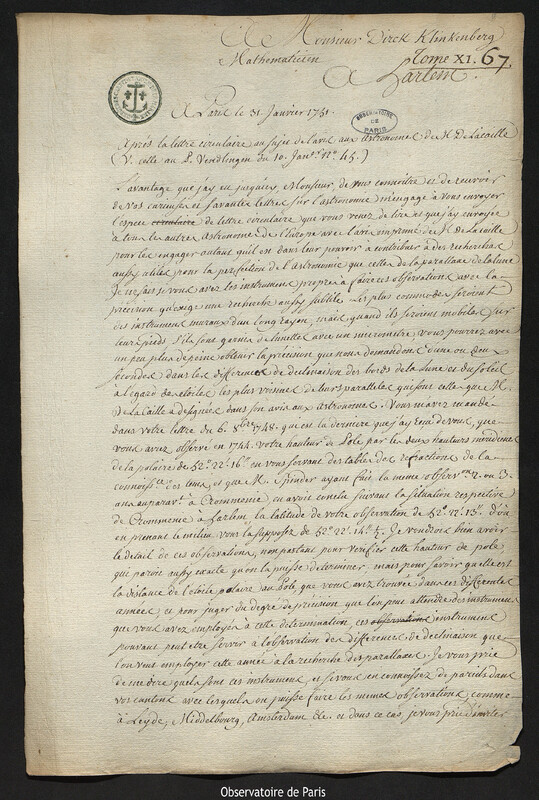 A Monsieur Dirck Klinkenberg
Mathematicien
Tome XI. 67.
A Harlem.
A Paris le 31. Janvier 1751.
OBSERVATOIRE DE PARIS
Après la lettre circulaire au sujet de l'avis aux Astronomes de M. De la Caille
(V. celle au P. Vendlingen du 10. Janv.er N.o 45.)
L'avantage que j'ay eu jusqu'icy, Monsieur, de vous connoître et de recevoir
de vos curieuses et sçavantes lettres sur l'astronomie m'engage à vous envoyer
l'espece circulaire de lettre circulaire que vous venez de lire et que j'ay envoyée
à tous les autres Astronomes de l'Europe avec l'avis imprimé de M. de la Caille
pour les engager autant qu'il est dans leur pouvoir à contribuer à des recherches
aussy utiles pour la perfection de l'Astronomie que celles de la parallaxe de la lune
Je ne sais si vous avez des instrumens propres à faire ces observations avec la
précision qu'exige une recherche aussy subtile. Les plus commodes seroient
des instrumens muraux d'un long rayon, mais quand ils seroient mobiles sur
leurs pieds s'ils sont garnis de lunettes avec un micrometre, vous pourriez avec
un peu plus de peine obtenir la précision que nous demandons d'une ou deux
secondes dans les differences de declinaison des bords de la lune et du soleil
à l'egard des etoiles les plus voisines de leurs paralleles qui sont celles que M.
De la Caille a designées dans son avis aux astronomes. Vous m'avez mandé
dans votre lettre du 6. 8bre 1748. qui est la derniere que j'ay reçu de vous, que
vous avez observé en 1744. votre hauteur de Pole par les deux hauteurs meridiennes
de la polaire de 52.° 22'. 16". en vous servant des tables des refractions de la
connoiss.ce des tems, et que M. Spender ayant fait la meme observ.on 2. ou 3.
ans auparav.t à Crommenie en avoit conclu suivant la situation respective
de Crommenie à Harlem la latitude de votre observation de 52.° 22'. 13". d'où
en prenant le milieu vous la supposez de 52.° 22'. 14". ½. Je voudrois bien avoir
le detail de ces observations, non pas tant pour verifier cette hauteur de pole
qui paroit aussy exacte qu'on la puisse determiner, mais pour savoir quelle est
la distance de l'etoile polaire au Pole, que vous avez trouvée dans ces differentes
années; et pour juger du degré de précision que l'on peut attendre des instrumens
que vous avez employés à cette determination, ces observations instrumens
pouvant peut etre servir à l'observation des differences de declinaison que
l'on veut employer cette année à la recherche des parallaxes. Je vous prie
de me dire quels sont ces instrumens, et si vous en connoissez de pareils dans
vos cantons avec lesquels on puisse faire les memes observations comme
à Leyde, Middelbourg, Amsterdam &c. et dans ce cas, je vous prie d'inviter
Observatoire de Paris